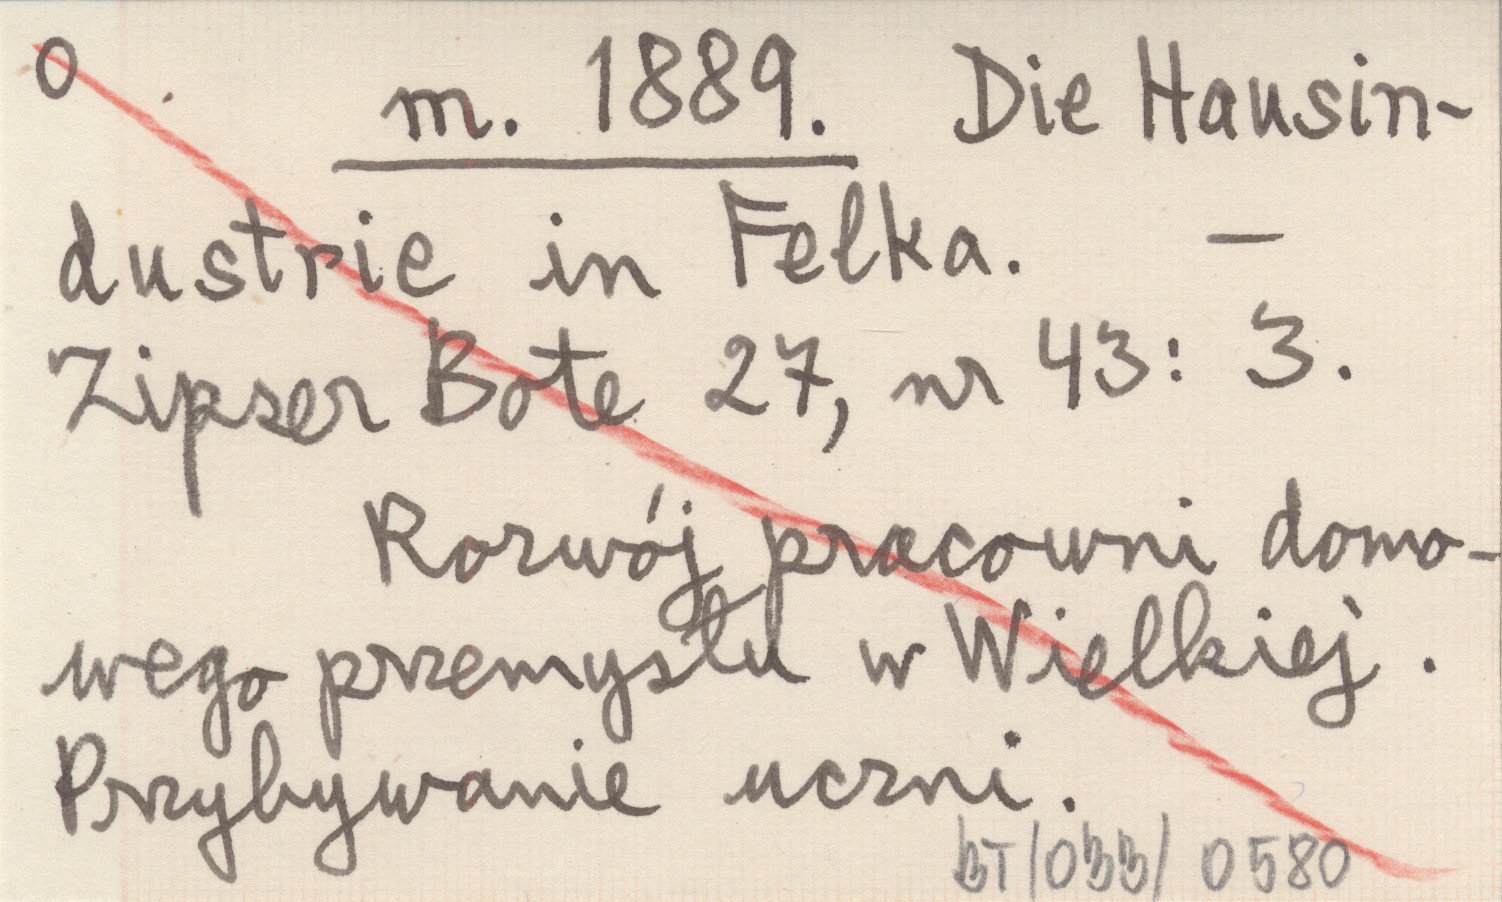 O
m. 1889. Die Hausin-
dustrie in Felka. —
Zipser Bote 27, nr 43: 3.
Rozwój pracowni domo-
wego przemysłu w Wielkiej.
Przybywanie uczni.
BT/033/ 0580